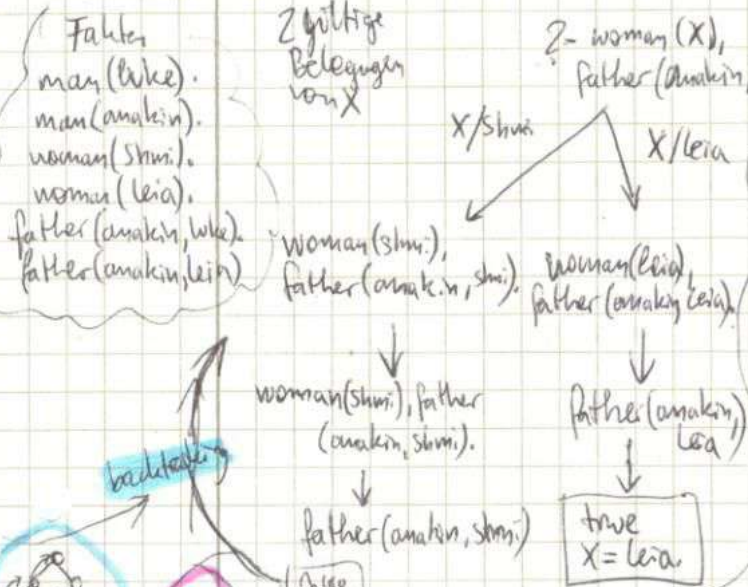 Fakten
man(luke).
man(anakin).
woman(shmi).
woman(leia).
father(anakin, luke).
father(anakin, leia)
2 gültige
Belegungen
von X
?- woman(X),
father(anakin,
X/shmi
X/leia
woman(shmi),
father(anakin, shmi).
woman(leia),
father(anakin, leia).
woman(shmi), father
(anakin, shmi).
father(anakin,
leia)
backtracking
father(anakin, shmi)
true
X = leia.
false